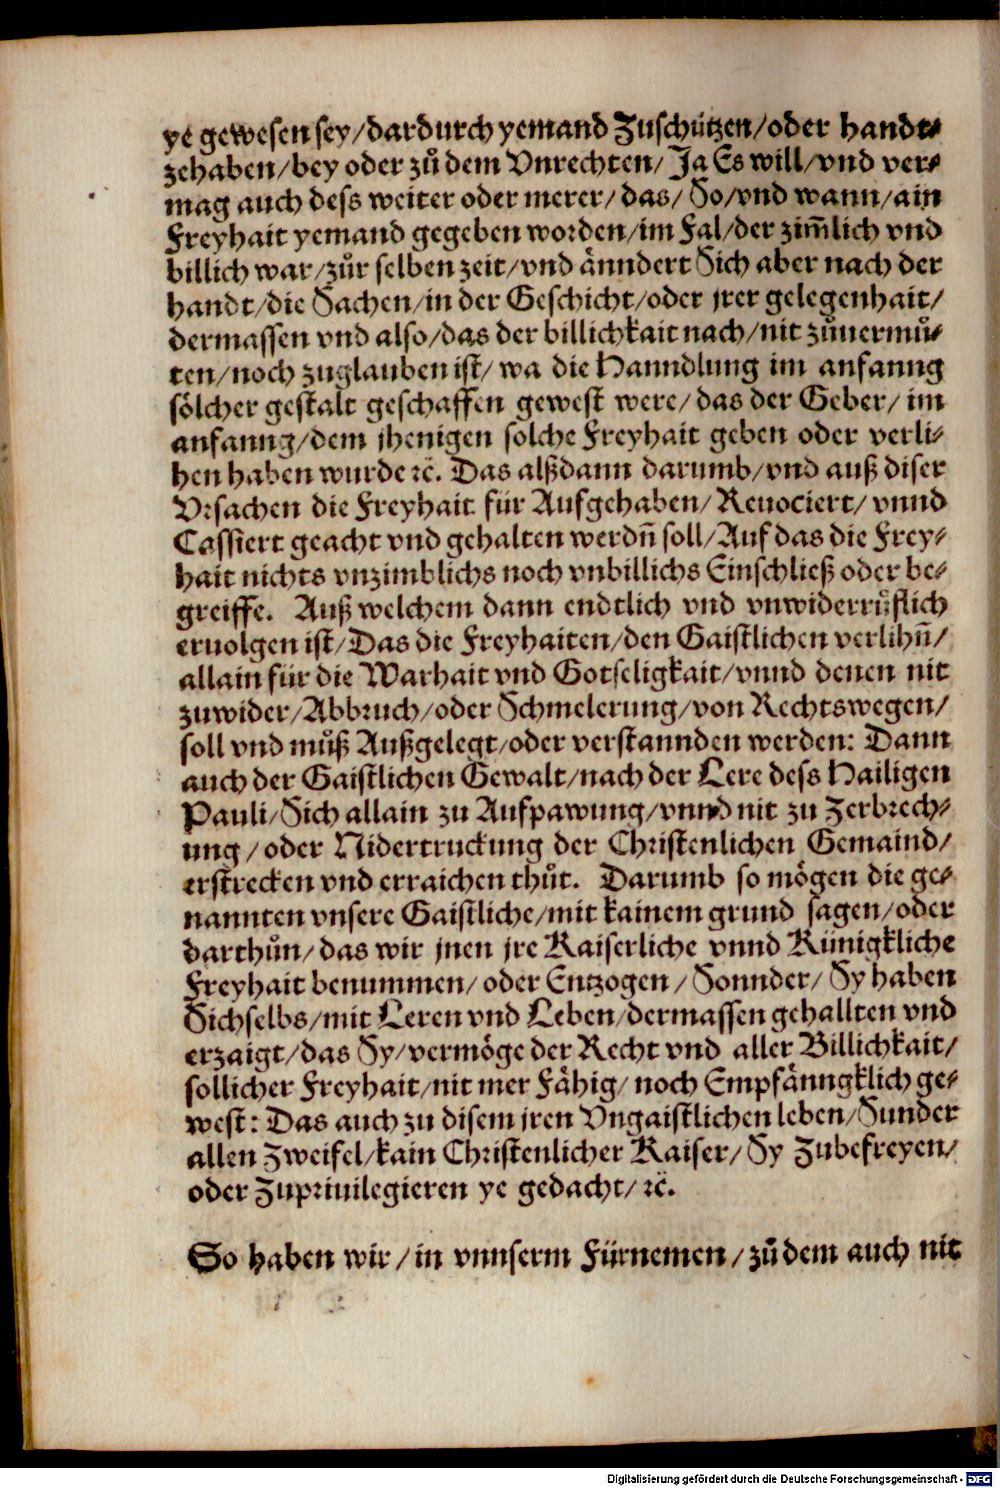 ye gewesen sey/dardurch yemand Zuschützen/oder handt⸗
zehaben/bey oder zuͦ dem Vnrechten/Ja Es will/vnd ver⸗
mag auch dess weiter oder merer/das/So/vnd wann/ain
Freyhait yemand gegeben worden/im Fal/der zim̄lich vnd
billich war/zuͦr selben zeit/vnd änndert Sich aber nach der
handt/die Sachen/in der Geschicht/oder jrer gelegenhait/
dermassen vnd also/das der billichkait nach/nit zuͦuermuͦ⸗
ten/noch zuglauben ist/wa die Hanndlung im anfanng
sölcher gestalt geschaffen gewest were/das der Geber/im
anfanng/dem jhenigen solche Freyhait geben oder verli⸗
hen haben wurde ꝛc̄. Das alßdann darumb/vnd auß diser
Vrsachen die Freyhait für Aufgehaben/Reuociert/vnnd
Cassiert geacht vnd gehalten werdn̄ soll/Auf das die Frey⸗
hait nichts vnzimblichs noch vnbillichs Einschließ oder be⸗
greiffe. Auß welchem dann endtlich vnd vnwiderruͤflich
eruolgen ist/Das die Freyhaiten/den Gaistlichen verlihn̄/
allain für die Warhait vnd Gotseligkait/vnnd denen nit
zuwider/Abbruch/oder Schmelerung/von Rechtswegen/
soll vnd muͦß Außgelegt/oder verstannden werden: Dann
auch der Gaistlichen Gewalt/nach der Lere dess Hailigen
Pauli/Sich allain zu Aufpawung/vnnd nit zu Zerbrech⸗
ung/oder Nidertruckung der Christenlichen Gemaind/
erstrecken vnd erraichen thuͦt. Darumb so mögen die ge⸗
nannten vnsere Gaistliche/mit kainem grund sagen/oder
darthuͦn/das wir jnen jre Kaiserliche vnnd Künigkliche
Freyhait benummen/oder Entzogen/Sonnder/Sy haben
Sichselbs/mit Leren vnd Leben/dermassen gehallten vnd
erzaigt/das Sy/vermöge der Recht vnd aller Billichkait/
sollicher Freyhait/nit mer Fähig/noch Empfänngklich ge⸗
west: Das auch zu disem jren Vngaistlichen leben/Sunder
allen Zweifel/kain Christenlicher Kaiser/Sy Zubefreyen/
oder Zupriuilegieren ye gedacht/ꝛc̄.
So haben wir/in vnnserm Fürnemen/zuͦ dem auch nit
Digitalisierung gefördert durch die Deutsche Forschungsgemeinschaft - DFG